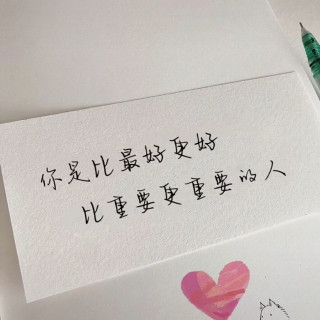 你是比最好更好
比重要更重要的人